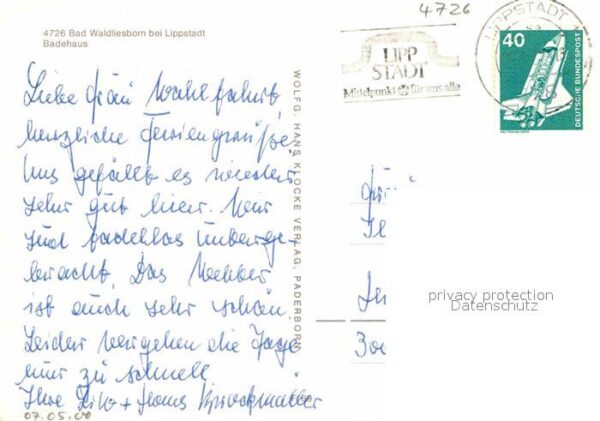 4726 Bad Waldliesborn bei Lippstadt
Badehaus
4726
LIPPSTADT
LIPP
STADT
Mittelpunkt für uns alle
40
DEUTSCHE BUNDESPOST
WOLFG. HANS KLOCKE VERLAG, PADERBORN
Liebe Frau Wahlfahrt
herzliche Feriengrüße.
Uns gefällt es wieder
sehr gut hier. Wir
sind tadellos unterge-
bracht. Das Wetter
ist auch sehr schön.
Leider vergehen die Tage
nur zu schnell
Ihre + Hans
07.05.00
privacy protection
Datenschutz